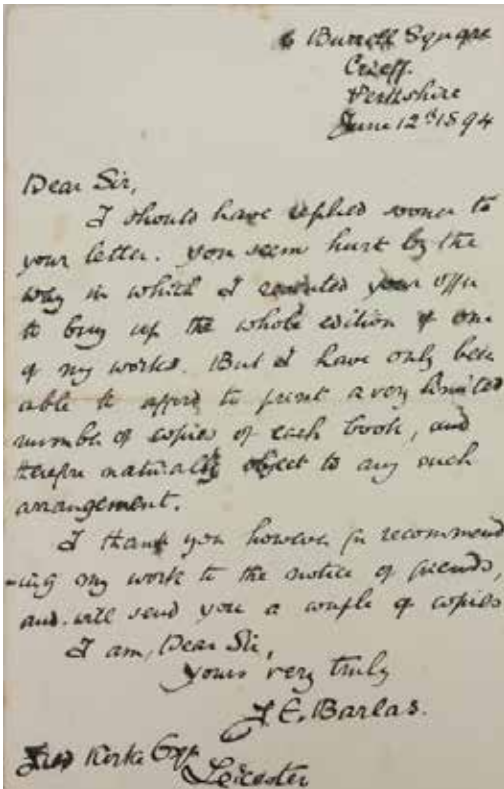 6 Burrell Square
Crieff.
Perthshire
June 12th 1894
Dear Sir,
I should have replied sooner to
your letter. You seem hurt by the
way in which I received your offer
to buy up the whole edition of one
of my works. But I have only been
able to afford to print a very limited
number of copies of each book, and
therefore naturally object to any such
arrangement.
I thank you however for recommend
-ing my work to the notice of friends,
and will send you a couple of copies
I am, Dear Sir,
yours very truly
J. E. Barlas.
Kirke Esqr
Leicester